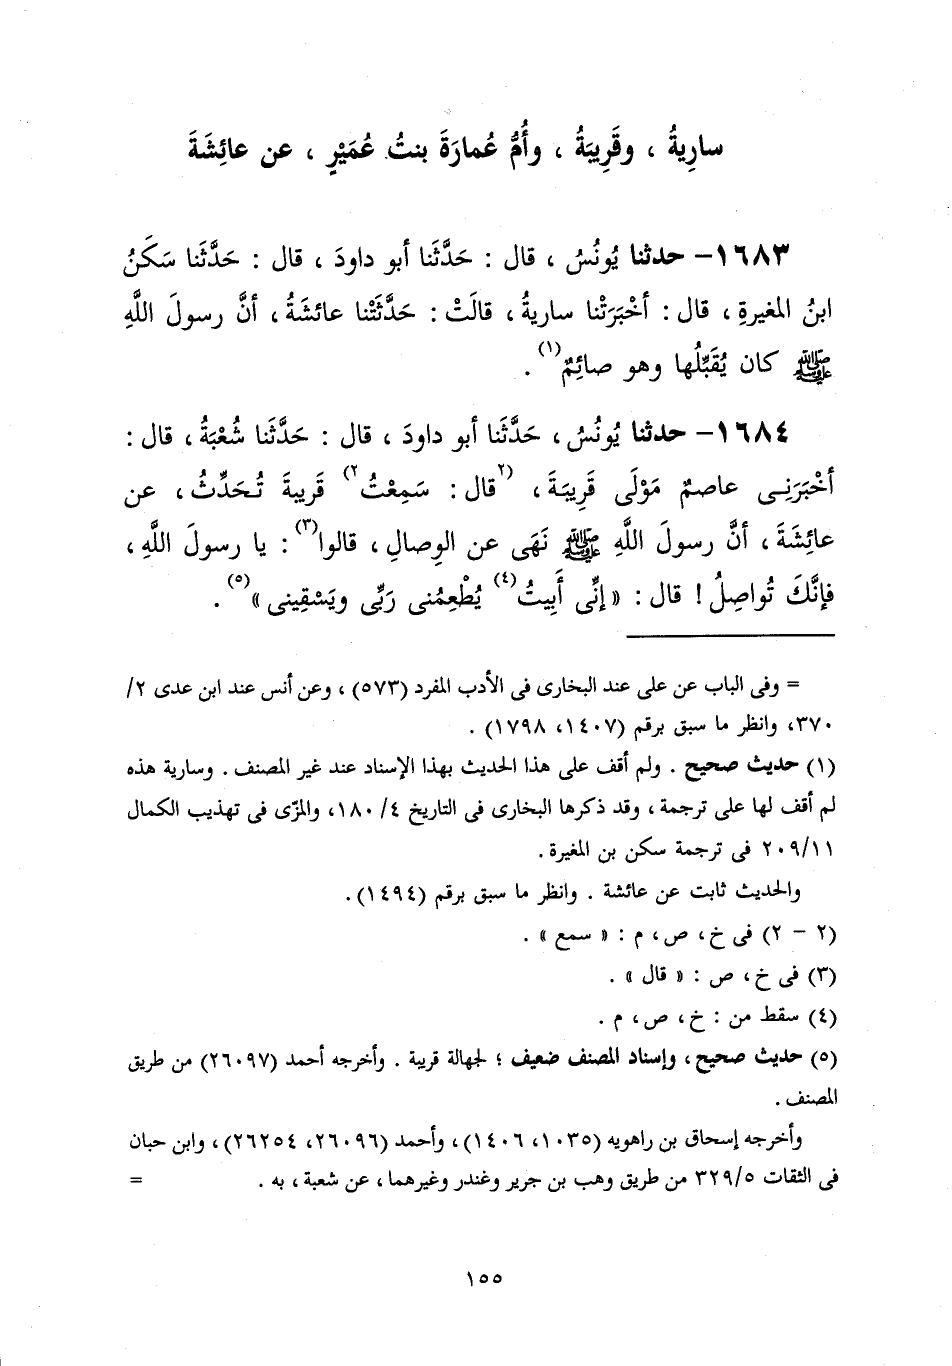 سارِيةُ ، وقَرِيبَةُ ، وأُمُّ عُمارَةَ بنتُ عُمَيْرٍ ، عن عائِشَةَ
١٦٨٣- حدثنا يُونُسُ ، قال : حَدَّثَنا أبو داودَ ، قال : حَدَّثَنا سَكَنُ
ابنُ المغيرةِ ، قال : أخْبَرَتْنا ساريةُ ، قالَتْ : حَدَّثَتْنا عائشَةُ ، أنَّ رسولَ اللَّهِ
ﷺ كان يُقَبِّلُها وهو صائِمٌ(١) .
١٦٨٤- حدثنا يُونُسُ ، حَدَّثَنا أبو داودَ ، قال : حَدَّثَنا شُعْبَةُ ، قال :
أخْبَرَنِى عاصمٌ مَوْلَى قَرِيبَةَ ، (٢قال : سَمِعْتُ٢) قَرِيبةَ تُحَدِّثُ ، عن
عائشَةَ ، أنَّ رسولَ اللَّهِ ﷺ نَهَى عن الوِصالِ ، قالوا(٣) : يا رسولَ اللَّهِ ،
فإنَّكَ تُواصِلُ ! قال : « إنِّى أَبِيتُ(٤) يُطْعِمُنى رَبِّى ويَسْقِينى »(٥) .
= وفى الباب عن على عند البخارى فى الأدب المفرد (٥٧٣) ، وعن أنس عند ابن عدى ٢/
٣٧٠، وانظر ما سبق برقم (١٤٠٧، ١٧٩٨) .
(١) حديث صحيح . ولم أقف على هذا الحديث بهذا الإسناد عند غير المصنف . وسارية هذه
لم أقف لها على ترجمة ، وقد ذكرها البخارى فى التاريخ ٤/ ١٨٠، والمزّى فى تهذيب الكمال
٢٠٩/١١ فى ترجمة سكن بن المغيرة .
والحديث ثابت عن عائشة . وانظر ما سبق برقم (١٤٩٤) .
(٢ - ٢) فى خ ، ص ، م : « سمع » .
(٣) فى خ ، ص : « قال » .
(٤) سقط من : خ ، ص ، م .
(٥) حديث صحيح ، وإسناد المصنف ضعيف ؛ لجهالة قريبة . وأخرجه أحمد (٢٦٠٩٧) من طريق
المصنف .
وأخرجه إسحاق بن راهويه (١٠٣٥، ١٤٠٦) ، وأحمد (٢٦٠٩٦، ٢٦٢٥٤) ، وابن حبان
فى الثقات ٣٢٩/٥ من طريق وهب بن جرير وغندر وغيرهما ، عن شعبة ، به . =
١٥٥